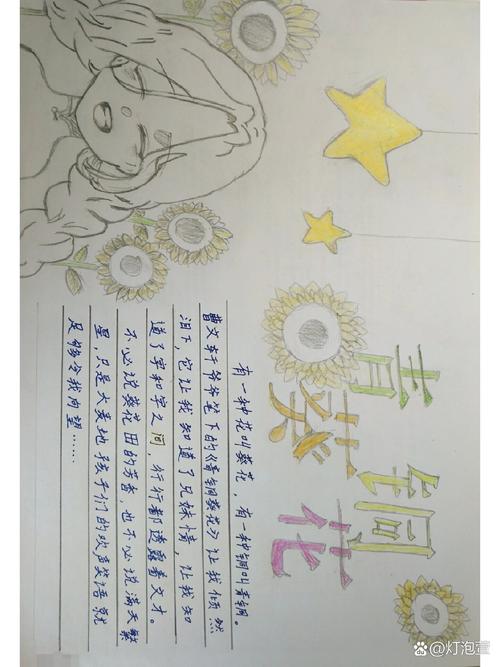 青铜
葵花
有一种花叫葵花，有一种铜叫青铜。
曹文轩爷爷笔下的《青铜葵花》让我倾然
泪下，它让我知道了兄妹情，让我知
道了字和字之间，行行都透露着文才。
不必说葵花田的芳香，也不必说满天繁
星，只是大麦地孩子们的欢声笑语就
足够令我向望……
@灯泡萱